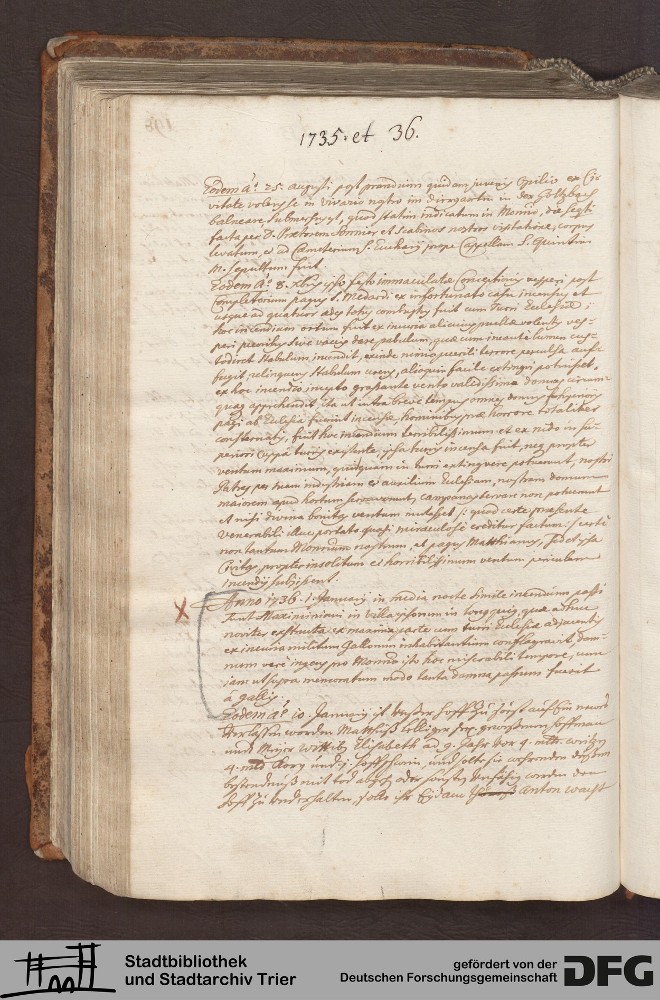 1735. et 36.
Eodem aº. 25. augusti post prandium quidam juvenis Opilio ex Ci-
vitate volens se in vivario nostro im diergartin in der Goltzbach
balneare submersus est, quod statim indicatum in Monrio,
facta per D. Praetorem et Scabinos nostros visitatione, corpus
levatum, et ad Caemeterium S. Eucharij prope Cappellam S. Quintini
M. sepultum fuit.
Eodem Aº. 8. Xbris ipso festo immaculatae Conceptionis vesperi post
Completorium pagus S. Medardi ex infortunato casu incensus et
usque ad quatuor aedes totus combustus fuit cum turri Ecclesiae;
hoc incendium ortum fuit ex incuria alicuius puellae volentis ves-
peri pecoribus sive vaccis dare pabulum, quae cum incaute lumen cus-
todiret stabulum incendit, exinde nimio terrore perculsa aufu-
fugit, relinquens stabulum alioquin facile extingui potuisset.
ex hoc incendio incepto grassante vento validissimo domus circum-
quaq apprehendit, ita ut intra breve tempus omnes domus
pagi ab Ecclesia fuerint incensae, hominibus prae horrore totaliter
consternatis, fuit hoc incendium terribilissimum et ex nido in su-
periori Cuppa turris existente, ipsa turris incensa fuit, neq propter
ventum maximum, quidquam in turri extinguere potuerunt, nostri
Patres per suam industriam et auxilium Ecclesiam, nostram domum
maiorem apud hortum servaverunt, campanas servare non potuerunt
et nisi divina bonitas ventum mutasset /: quod certe praesente
venerabili illuc portato quasi miraculose creditur factum :/ certe
non tantum Monrium nostrum et pagus Matthianus, sed et ipsa
Civitas propter insolitum et horribilissimum ventum periculum
incendij subijssent.
Anno 1736. 1. January in media nocte simile incendium passi
sunt Maximiniani in villa ipsorum in longuig, quae adhuc
noviter exstructa ex maxima parte cum turri Ecclesiae adjacentis
ex incuria militum Gallorum inhabitantium conflagravit, dam-
num vere ingens pro Monrio isto hoc miserabili tempore, cum
iam ut supra memoratum modo tanta damna passum fuerit
à gallis.
Eodem aº. 10. January ist unser hoff zu Horst auff ein neues
verlassen worden Mattheiß Zolliger sex. gewesenen hoffman
und Meyer wittib Elisabeth ad 9. Jahr vor 4. mltr. weitzen
4. mltr Korn und 1. hoffschwein, und solte sie
bestendnuß mit tod abgeh oder sonsten verhassen werden den
hoff zu underhalten, solle ihr Eydam Anton
Stadtbibliothek
und Stadtarchiv Trier
gefördert von der
Deutschen Forschungsgemeinschaft
DFG